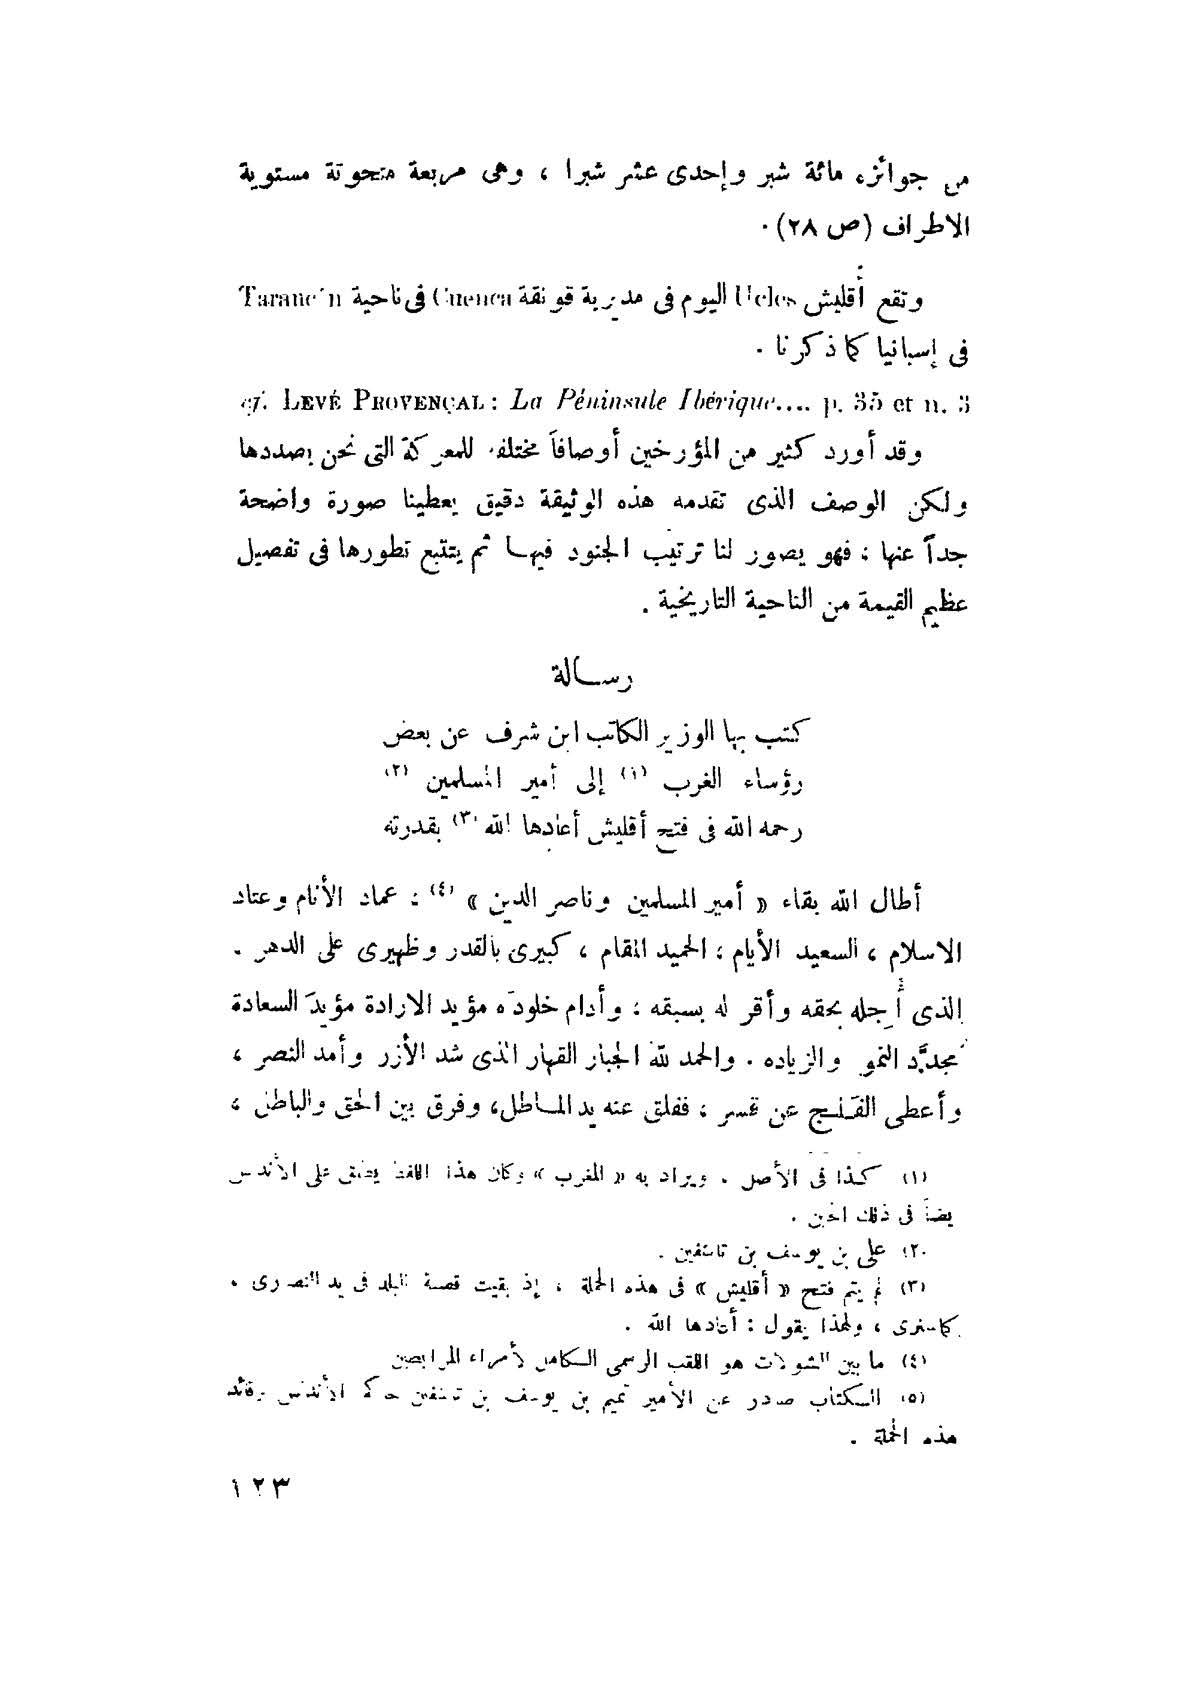 من جوائزه مائة شبر وإحدى عشر شبرا ، وهى مربعة منحوتة مستوية
الاطراف (ص ٢٨) .
وتقع أُقليش Ucles اليوم فى مديرية قونقة Cuenca فى ناحية Tarancón
فى إسبانيا كما ذكرنا .
cf. LEVÉ PROVENÇAL : La Péninsule Ibérique.... p. 35 et n. 3
وقد أورد كثير من المؤرخين أوصافاً مختلفه للمعركة التى نحن بصددها
ولكن الوصف الذى تقدمه هذه الوثيقة دقيق يعطينا صورة واضحة
جداً عنها ؛ فهو يصور لنا ترتيب الجنود فيها ثم يتتبع تطورها فى تفصيل
عظيم القيمة من الناحية التاريخية .
رسالة
كتب بها الوزير الكاتب ابن شرف عن بعض
رؤساء الغرب (١) إلى أمير المسلمين (٢)
رحمه الله فى فتح أقليش أعادها الله (٣) بقدرته
أطال الله بقاء « أمير المسلمين وناصر الدين » (٤) : عماد الأنام وعتاد
الاسلام ، السعيد الأيام ؛ الحميد المقام ، كبيرى بالقدر وظهيرى على الدهر .
الذى أُجله بحقه وأقر له بسبقه ؛ وأدام خلوده مؤيد الارادة مؤيدَ السعادة
مجدَّد النمو والزياده . والحمد لله الجبار القهار الذى شد الأزر وأمد النصر ،
وأعطى الفلج عن قسر ، ففلق عنه يد المـاطل، وفرق بين الحق والباطل ،
(١) كـذا فى الأصل . ويراد به « المغرب » وكان هذا اللفظ يطلق على الأندلس
يضاً فى ذلك الحين .
(٢) على بن يوسف بن تاشفين .
(٣) لم يتم فتح « أقليش » فى هذه الحملة ، إذ بقيت قصبة البلد فى يد النصارى ،
كما سنرى ، ولهذا يقول : أعادها الله .
(٤) ما بين الشولات هو اللقب الرسمى الكامل لأمراء المرابطين
(٥) الكتاب صادر عن الأمير تميم بن يوسف بن تاشفين حاكم الأندلس وقائد
هذه الحملة .
١٢٣